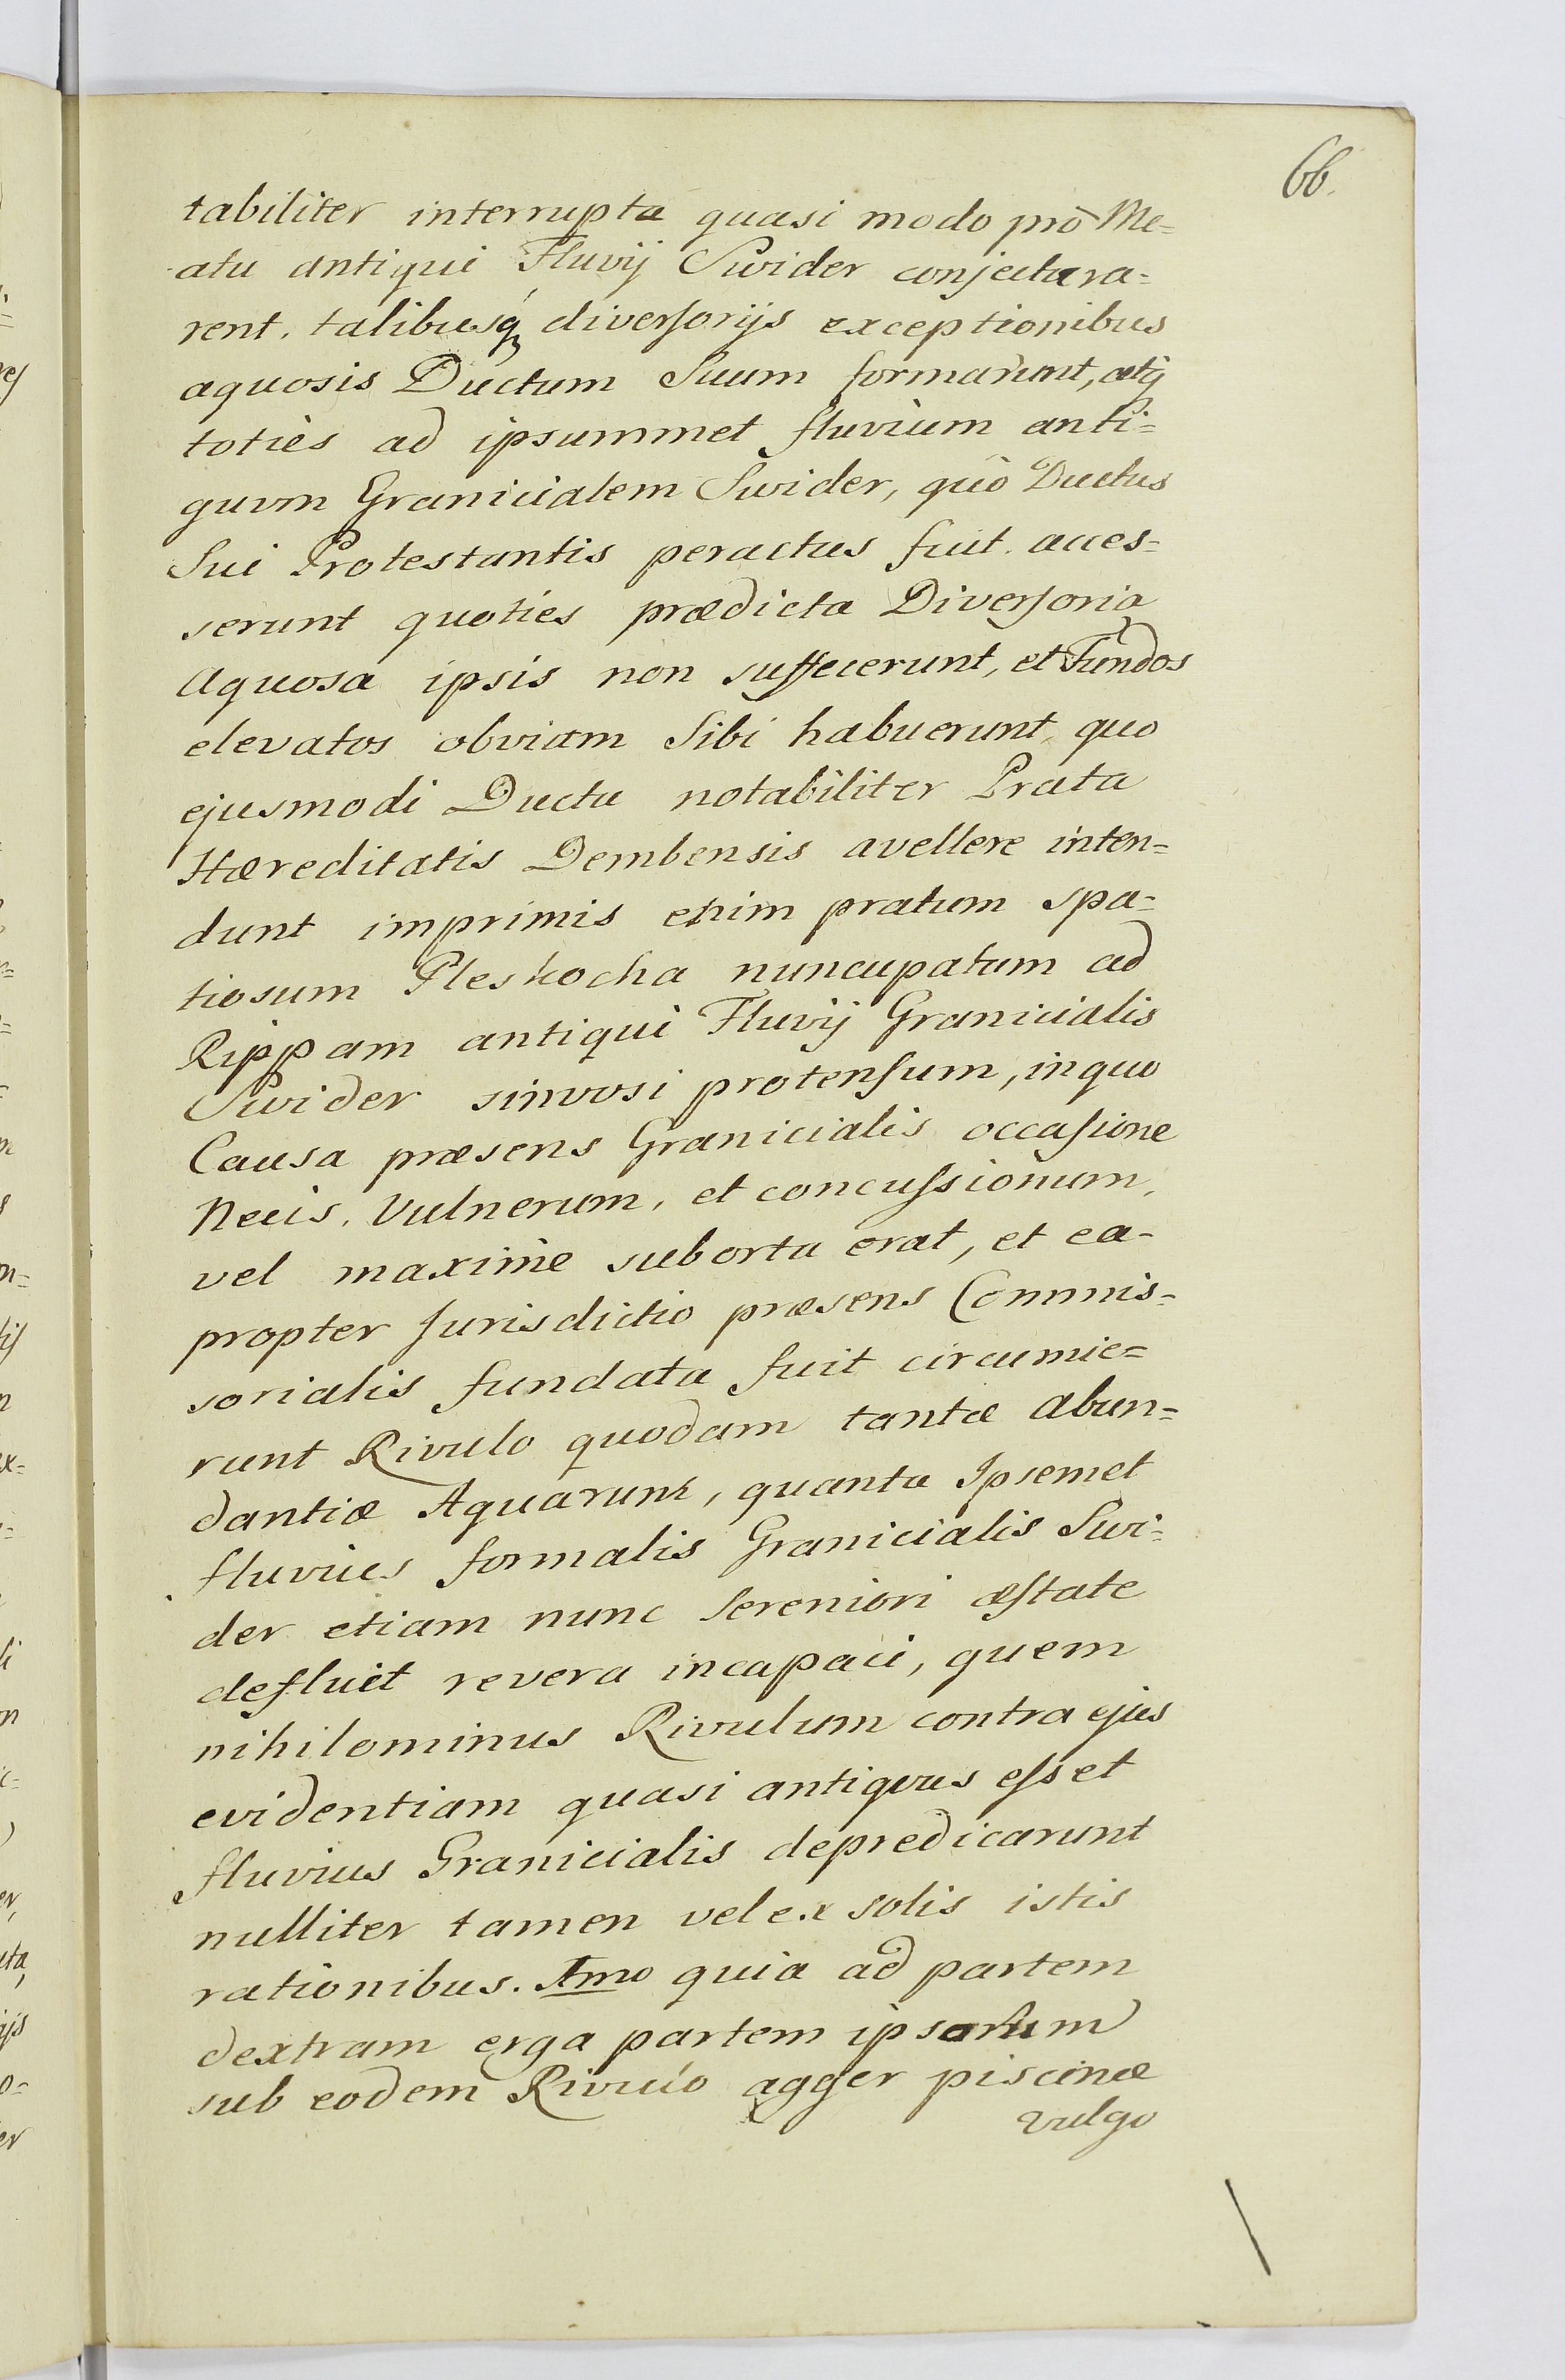 66.
tabiliter interrupta quasi modo prò Me=
atu antiqui Fluvij Swider conjectura=
rent. talibusq́ diversorijs exceptionibus
aquosis Ductum Suum formarunt, atq́
toties ad ipsummet fluvium anti=
quvm Granicialem Swider, quò Ductus
Sui Protestantis peractus fuit. acces=
serunt quoties prædicta Diversoria
Aquosa ipsis non suffecerunt, et Fundos
elevatos obviam Sibi habuerunt, quo
ejusmodi Ductu notabiliter Prata
Hæreditatis Dembensis avellere inten=
dunt imprimis enim pratum spa=
tiosum Pleskocha nuncupatum ad
Rippam antiqui Fluvij Granicialis
Swider sinvosi protensum, in quo
Causa præsens Granicialis occasione
Necis, Vulnerum, et concussionum,
vel maxime suborta erat, et ea-
propter Jurisdictio præsens Commis=
sorialis fundata fuit circumie=
runt Rivulo quodam tantæ Abun=
dantiæ Aquarum, quanta Ipsemet
fluvius formalis Granicialis Swi=
der etiam nunc Sereniori æstate
defluit revera incapaci, quem
nihilominus Rivulum contra ejus
evidentiam quasi antiqvus esset
fluvius Granicialis depredicarunt
nulliter tamen vel ex solis istis
rationibus. Imo quia ad partem
dextram erga partem ipsorum
sub eodem Rivulo agger piscinæ
vulgo